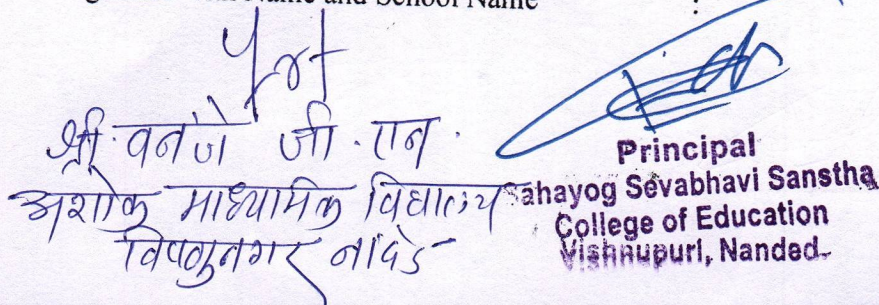 Name and School Name :
श्री. वनंजे जी. एन.
अशोक माध्यामिक विद्यालय
विष्णुनगर नांदेड
Principal
Sahayog Sevabhavi Sanstha
College of Education
Vishnupuri, Nanded.